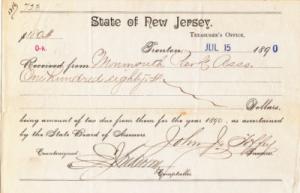 State of New Jersey.
TREASURER'S OFFICE,
O.K.
Trenton JUL 15 1890
Received from Monmouth Park Assn.
One Hundred eighty
Dollars,
being amount of tax due from them for the year 1890, as ascertained
by the State Board of Assessors
John J. Toffey
Countersigned
Treasurer.
Comptroller.